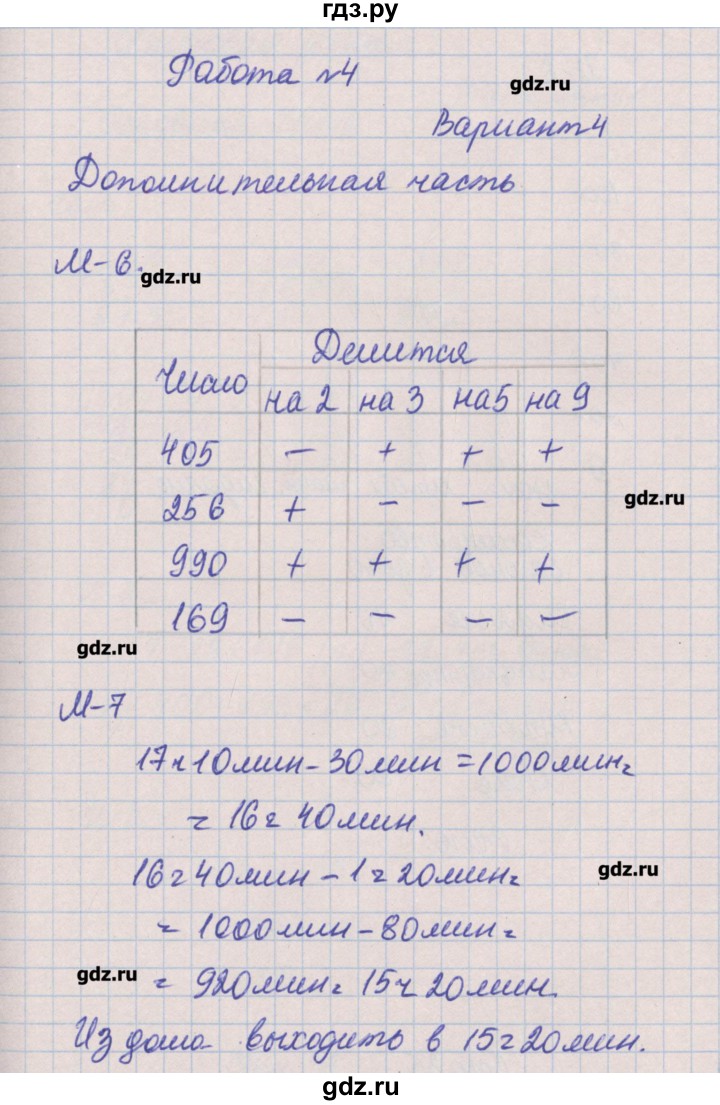 гдз.ру
Работа №4
gdz.ru
Вариант 4
Дополнительная часть
М-6.
gdz.ru
Число Делится
на 2 на 3 на 5 на 9
405 – + + +
256 + – – –
gdz.ru
990 + + + +
169 – – – –
gdz.ru
М-7
17ч 10мин – 30мин = 1000мин =
= 16ч 40мин.
16ч 40мин – 1ч 20мин =
gdz.ru
= 1000мин – 80мин =
gdz.ru
= 920мин = 15ч 20мин.
Из дома выходить в 15ч 20мин.
gdz.ru